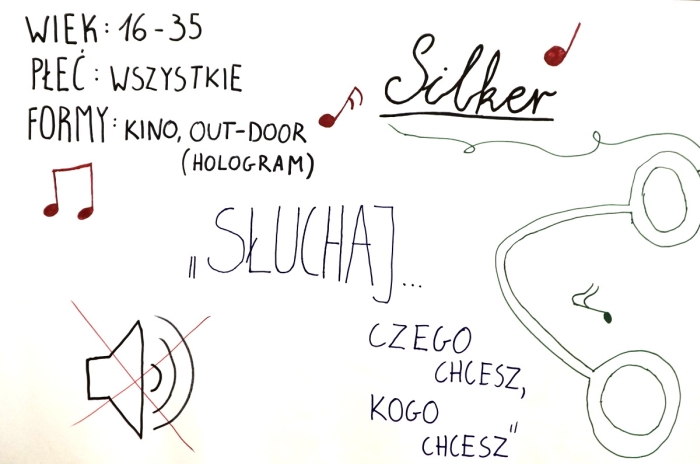 WIEK: 16-35
PŁEĆ: WSZYSTKIE
FORMY: KINO, OUT-DOOR
(HOLOGRAM)
Silker
„SŁUCHAJ...
CZEGO
CHCESZ,
KOGO
CHCESZ"